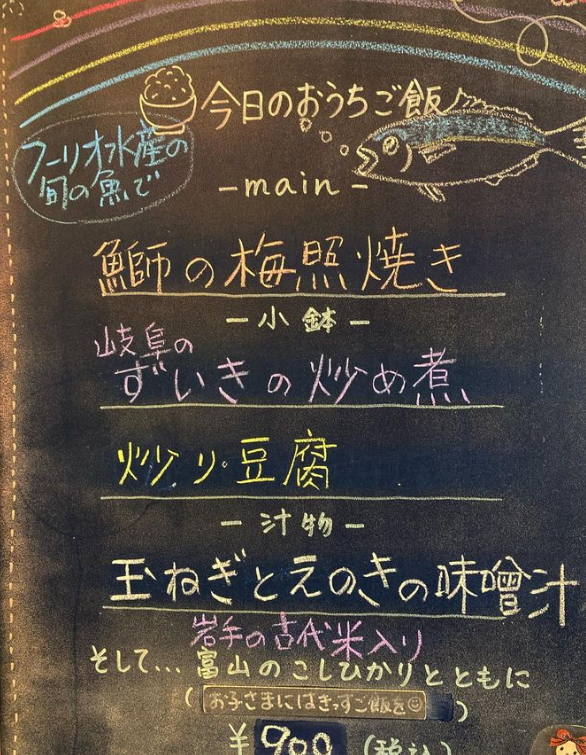 今日のおうちご飯
フーリオ水産の
旬の魚で
-main-
鰤の梅照焼き
-小鉢-
岐阜の
ずいきの炒め煮
炒り豆腐
-汁物-
玉ねぎとえのきの味噌汁
岩手の古代米入り
そして...富山のこしひかりとともに
(お子さまにはきっずご飯を☺)
¥900(税込)